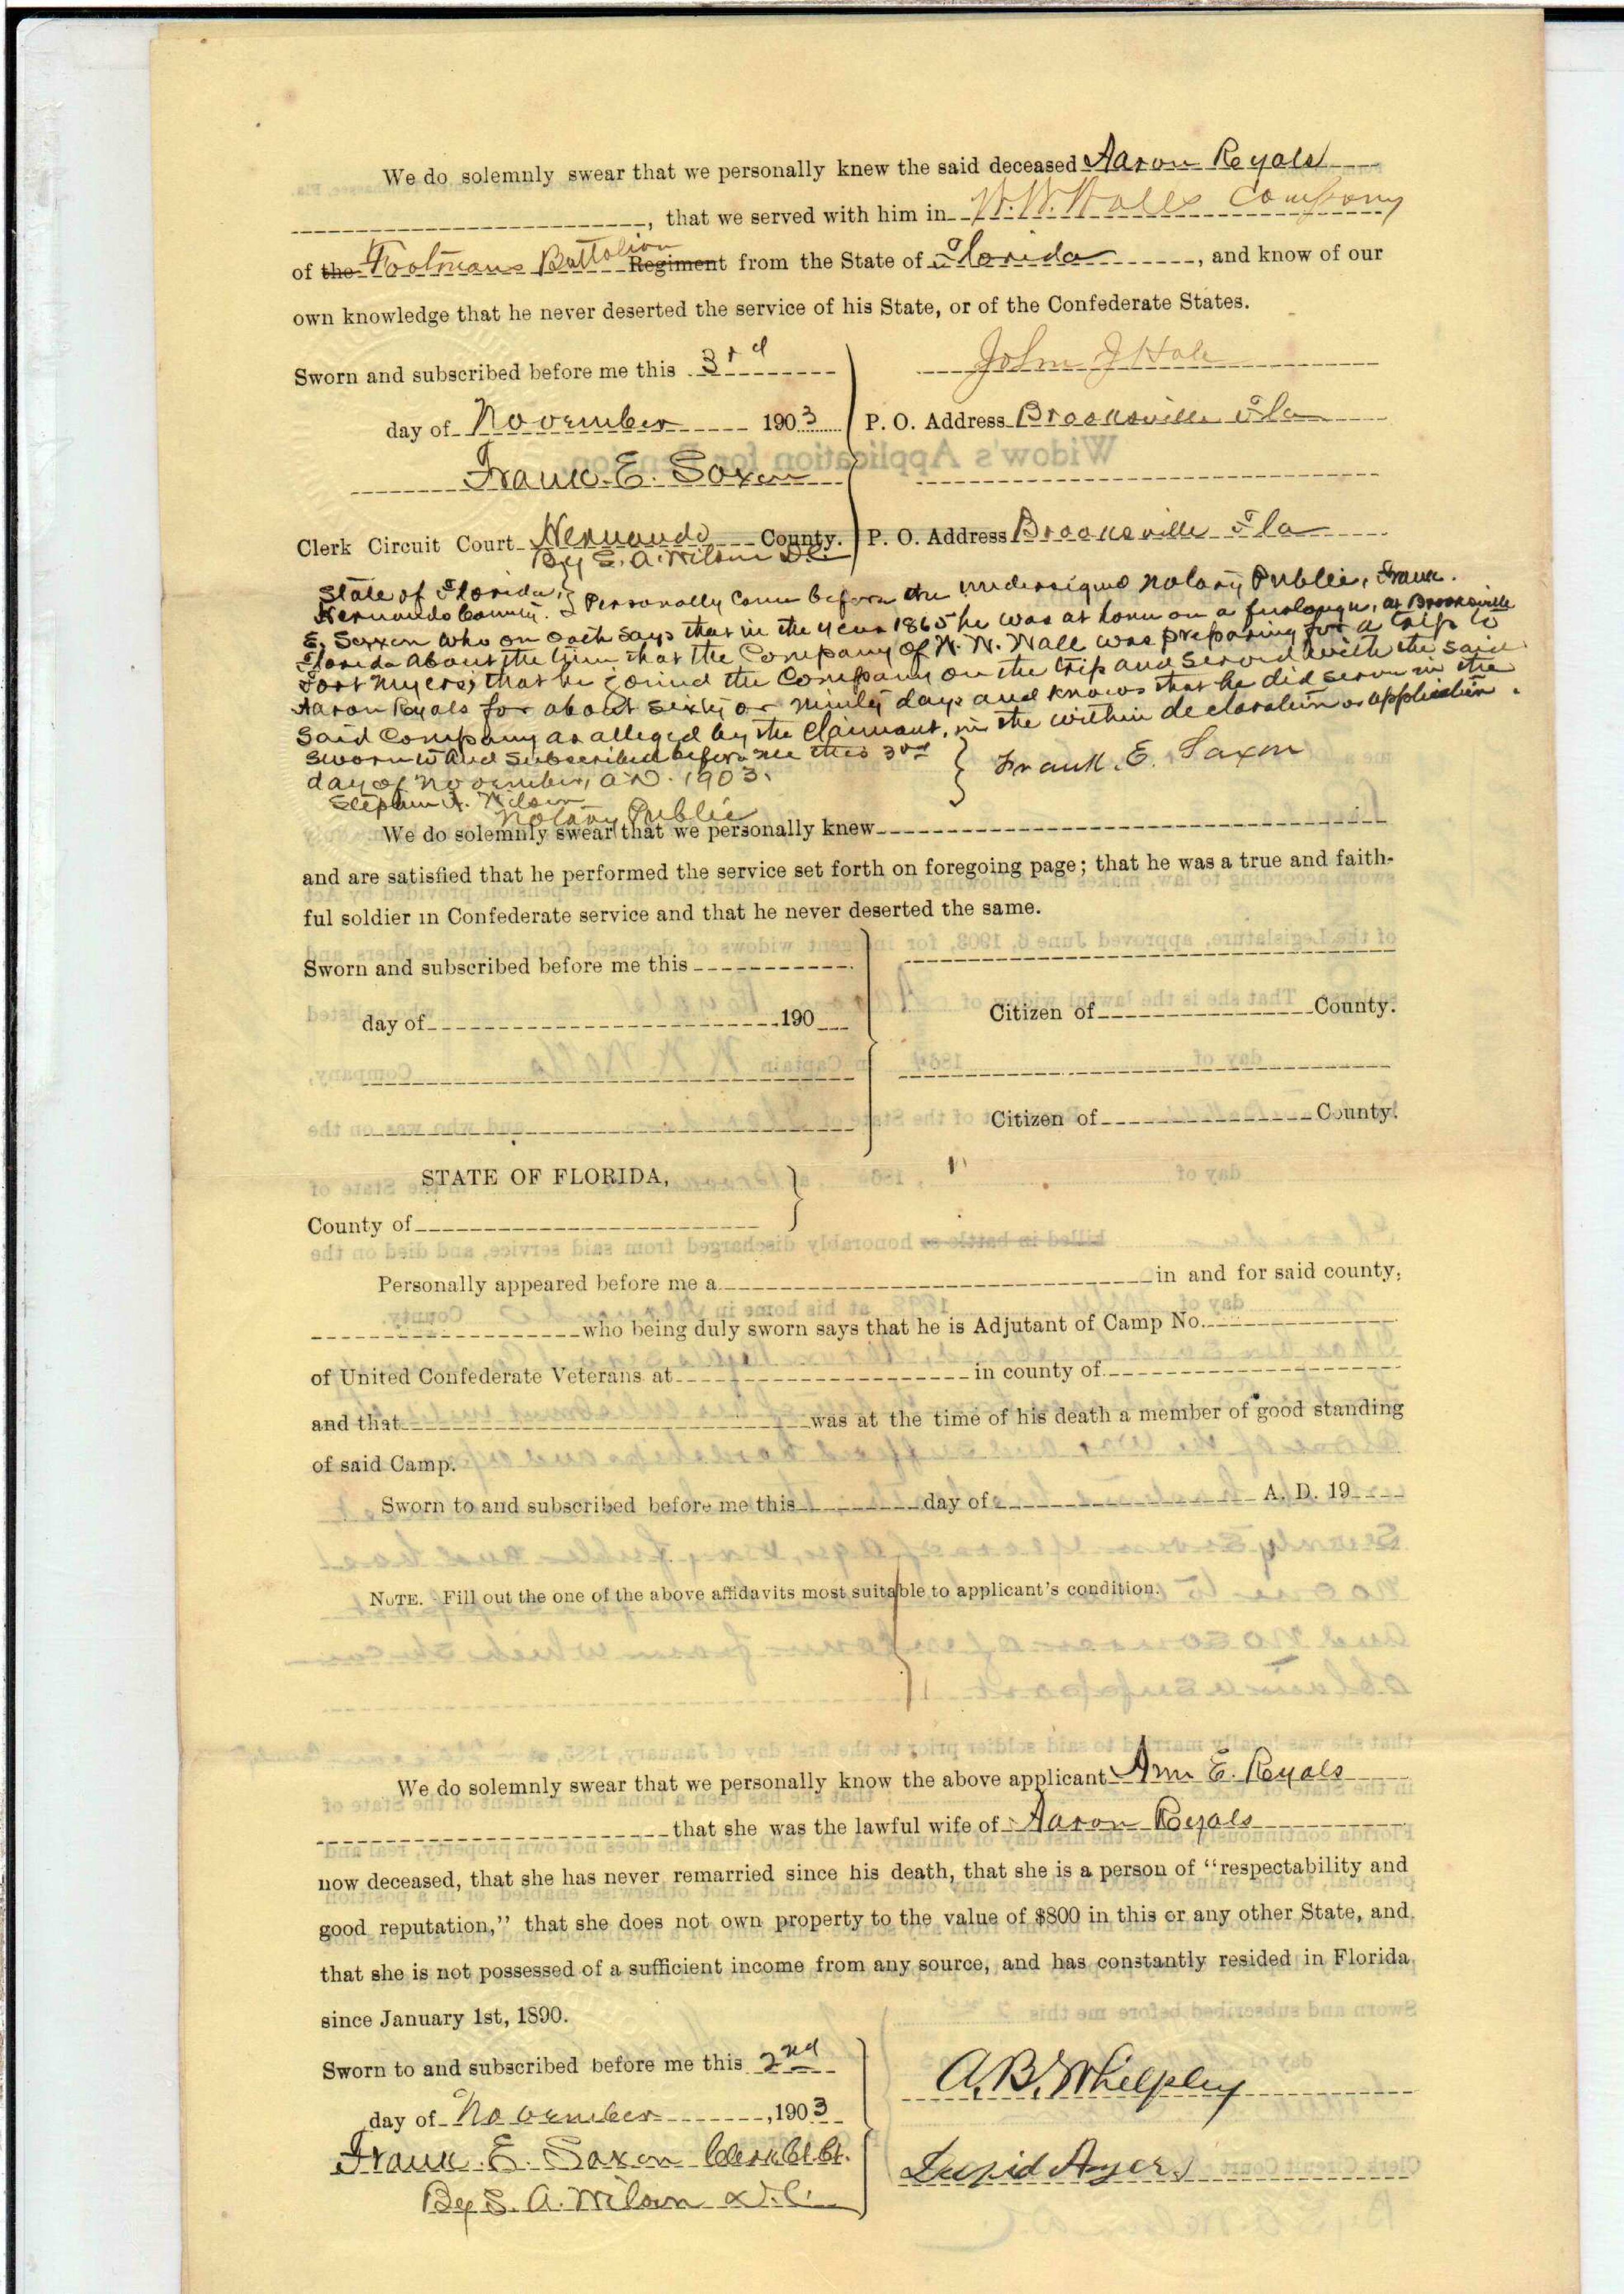 We do solemnly swear that we personally knew the said deceased Aaron Royals
, that we served with him in W. W. Walls Company
of the Footmans Battalion Regiment from the State of Florida, and know of our
own knowledge that he never deserted the service of his State, or of the Confederate States.
Sworn and subscribed before me this 3rd
John J Hale
day of November 1903
P. O. Address Brooksville Fla
Frank. E. Saxon
Clerk Circuit Court Hernando County.
P. O. Address Brooksville Fla
By S. A. Wilson D.C.
State of Florida,
Hernando County. } Personally came before the undersigned Notary Public, Frank.
E. Saxxon who on oath says that in the year 1865 he was at home on a furlough, at Brooksville
Florida about the time that the Company of W. W. Wall was preparing for a trip to
Fort Myers, that he joined the Company on the trip and served with the said
Aaron Royals for about sixty or ninety days and knows that he did serve in the
said Company as alleged by the Claimant, in the within declaration or application.
Sworn to and subscribed before me this 3rd
day of November, A.D. 1903.
Frank. E. Saxon
Stephen A. Wilson
Notary Public
We do solemnly swear that we personally knew
and are satisfied that he performed the service set forth on foregoing page; that he was a true and faith-
ful soldier in Confederate service and that he never deserted the same.
Sworn and subscribed before me this
day of 190
Citizen of County.
Citizen of County.
STATE OF FLORIDA,
County of
Personally appeared before me a in and for said county,
who being duly sworn says that he is Adjutant of Camp No.
of United Confederate Veterans at in county of
and that was at the time of his death a member of good standing
of said Camp.
Sworn to and subscribed before me this day of A. D. 19
NOTE. Fill out the one of the above affidavits most suitable to applicant's condition.
We do solemnly swear that we personally know the above applicant Ann E. Royals
that she was the lawful wife of Aaron Royals
now deceased, that she has never remarried since his death, that she is a person of "respectability and
good reputation," that she does not own property to the value of $800 in this or any other State, and
that she is not possessed of a sufficient income from any source, and has constantly resided in Florida
since January 1st, 1890.
Sworn to and subscribed before me this 2nd
A. B. Whelpley
day of November, 1903
Frank. E. Saxon Clerk Ct. Ct.
Ayers
By S. A. Wilson D.C.